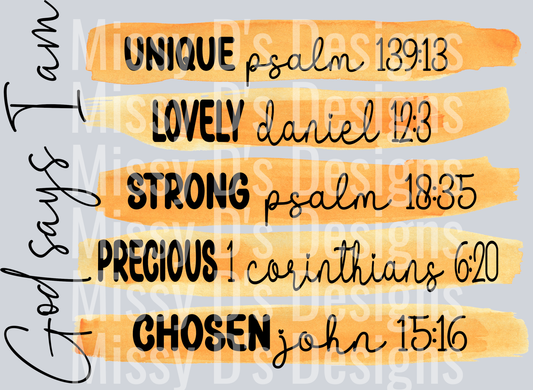 God says I am
UNIQUE psalm 139:13
LOVELY daniel 12:3
STRONG psalm 18:35
PRECIOUS 1 corinthians 6:20
CHOSEN john 15:16
Missy D's Designs
Missy D's Designs
Missy D's Designs
Missy D's Designs
Missy D's Designs
Missy D's Designs
Missy D's Designs
Missy D's Designs